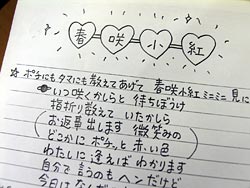 春咲小紅
☆ポチにもタマにも教えてあげて 春咲小紅ミニミニ見に
いつ咲くかしらと 待ちぼうけ
指折り数えて いたかしら
お返事出します 微笑みの
どこかに ポチッと 赤い色
わたしに 逢えばわかります
自分で言うのもヘンだけど
今日はなんだか